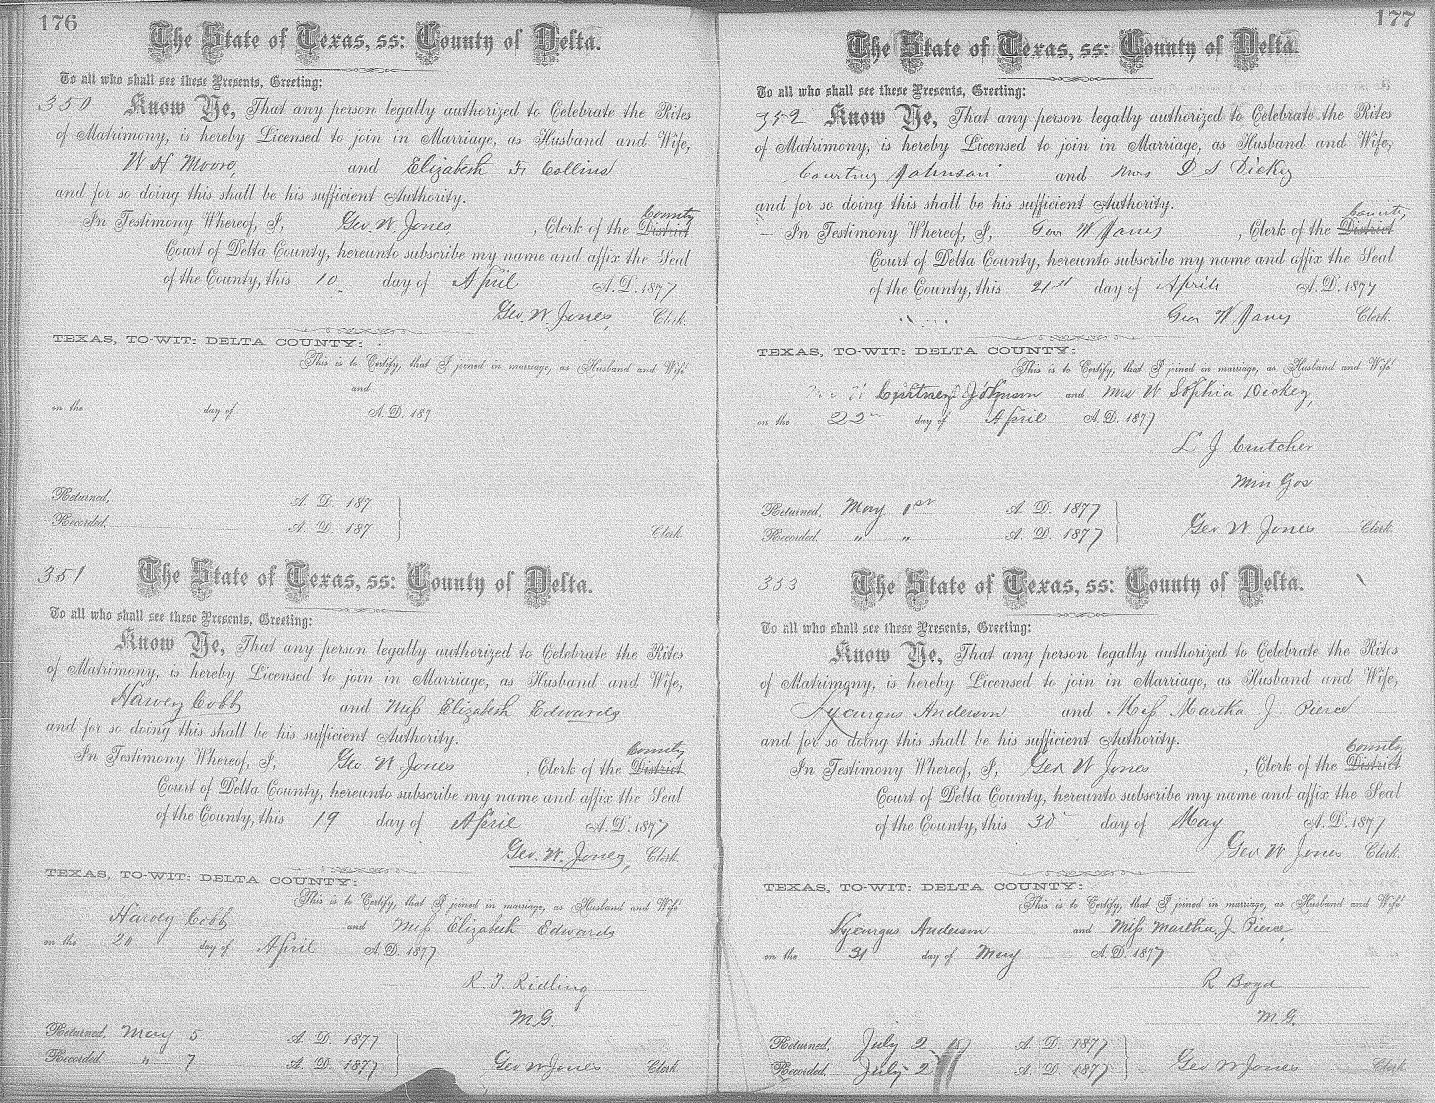 176
The State of Texas, ss: County of Delta.
To all who shall see these Presents, Greeting:
350 Know Ye, That any person legally authorized to Celebrate the Rites
of Matrimony, is hereby Licensed to join in Marriage, as Husband and Wife,
W H Moore, and Elizabeth F. Collins
and for so doing this shall be his sufficient Authority.
In Testimony Whereof, I, Geo. W. Jones, Clerk of the District County
Court of Delta County, hereunto subscribe my name and affix the Seal
of the County, this 10 day of April A.D. 1877
Geo. W Jones, Clerk.
TEXAS, TO-WIT: DELTA COUNTY:
This is to Certify, that I joined in marriage, as Husband and Wife
and
on the day of A.D. 187
Returned, A. D. 187
Recorded. A. D. 187 Clerk.
351 The State of Texas, ss: County of Delta.
To all who shall see these Presents, Greeting:
Know Ye, That any person legally authorized to Celebrate the Rites
of Matrimony, is hereby Licensed to join in Marriage, as Husband and Wife,
Harvey Cobb and Miss Elizabeth Edwards
and for so doing this shall be his sufficient Authority.
In Testimony Whereof, I, Geo W Jones, Clerk of the District County
Court of Delta County, hereunto subscribe my name and affix the Seal
of the County, this 19 day of April A.D. 1877
Geo. W. Jones, Clerk.
TEXAS, TO-WIT: DELTA COUNTY:
This is to Certify, that I joined in marriage, as Husband and Wife
Harvey Cobb and Miss Elizabeth Edwards
on the 20 day of April A.D. 1877
R. T. Ridling
M.G.
Returned, May 5 A. D. 1877
Recorded " 7 A. D. 1877 Geo W Jones Clerk.
177
The State of Texas, ss: County of Delta.
To all who shall see these Presents, Greeting:
352 Know Ye, That any person legally authorized to Celebrate the Rites
of Matrimony, is hereby Licensed to join in Marriage, as Husband and Wife,
Johnson and Mrs D S Dickey
and for so doing this shall be his sufficient Authority.
In Testimony Whereof, I, Geo W Jones, Clerk of the District County
Court of Delta County, hereunto subscribe my name and affix the Seal
of the County, this 21st day of April A.D. 1877
Geo W Jones Clerk.
TEXAS, TO-WIT: DELTA COUNTY:
This is to Certify, that I joined in marriage, as Husband and Wife
Johnson and Mrs W Sophia Dickey,
on the 22 day of April A.D. 1877
L J Crutcher
Min Gos
Returned, May 1st A. D. 1877
Recorded. " " A. D. 1877 Geo W Jones Clerk.
353 The State of Texas, ss: County of Delta.
To all who shall see these Presents, Greeting:
Know Ye, That any person legally authorized to Celebrate the Rites
of Matrimony, is hereby Licensed to join in Marriage, as Husband and Wife,
Lycurgus Anderson and Miss Martha J Pierce
and for so doing this shall be his sufficient Authority.
In Testimony Whereof, I, Geo W Jones, Clerk of the District County
Court of Delta County, hereunto subscribe my name and affix the Seal
of the County, this 30 day of May A.D. 1877
Geo W Jones Clerk.
TEXAS, TO-WIT: DELTA COUNTY:
This is to Certify, that I joined in marriage, as Husband and Wife
Lycurgus Anderson and Miss Martha J Pierce,
on the 31 day of May A.D. 1877
R Boyd
M.G.
Returned, July 2 A. D. 1877
Recorded, July 2 A. D. 1877 Geo W Jones Clerk.